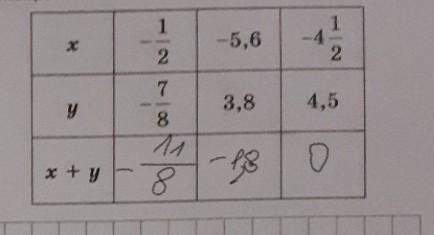 x -1/2 -5,6 -4 1/2
y -7/8 3,8 4,5
x + y -11/8 -1,8 0